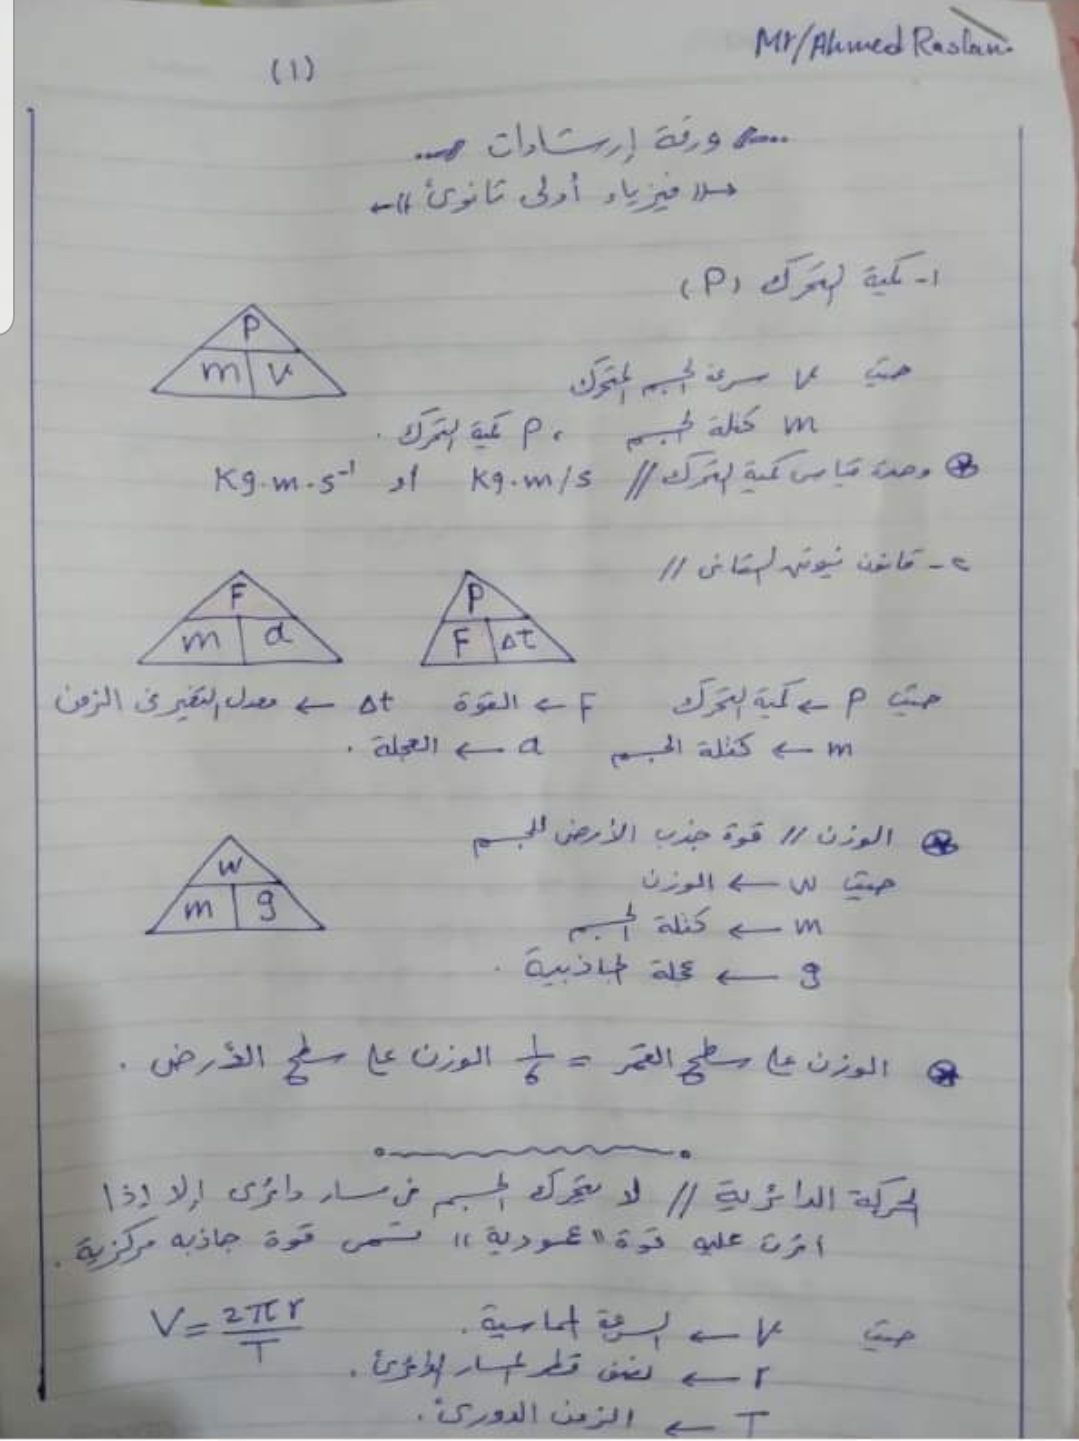 Mr/Ahmed Raslan.
(١)
ورقة إرشادات
« فيزياء أولى ثانوى »
١- كمية التحرك (P)
P
m v
حيث v سرعة الجسم المتحرك
m كتلة الجسم ، P كمية التحرك .
وحدة قياس كمية التحرك // kg.m/s أو Kg.m.s⁻¹
٢- قانون نيوتن الثانى //
P
F Δt
F
m a
حيث P ← كمية التحرك F ← القوة Δt ← معدل التغير فى الزمن
m ← كتلة الجسم a ← العجلة .
الوزن // قوة جذب الأرض للجسم
W
m g
حيث w ← الوزن
m ← كتلة الجسم
g ← عجلة الجاذبية .
الوزن على سطح القمر = 1/6 الوزن على سطح الأرض .
الحركة الدائرية // لا يتحرك الجسم فى مسار دائرى إلا إذا
أثرت عليه قوة "عمودية" تسمى قوة جاذبه مركزية .
حيث v ← السرعة المماسية .
V = 2πr/T
r ← نصف قطر المسار الدائرى .
T ← الزمن الدورى .